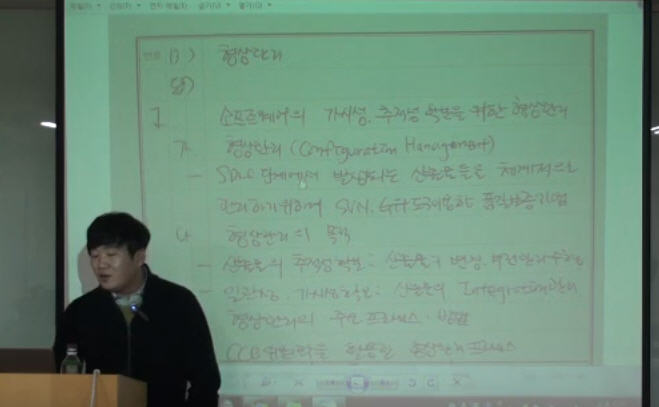 번호 13) 형상관리
답)
I. 소프트웨어의 가시성, 추적성 확보을 위한 형상관리
가. 형상관리 (Configuration Management)
- SDLC 단계에서 발생되는 산출물들을 체계적으로
관리하기위하여 SVN, Git도구이용한 품질보증기법
나. 형상관리의 목적
- 산출물의 추적성확보: 산출물의 변경, 버전관리
- 일관성, 가시성확보: 산출물의 Integration관리
형상관리의 주요 프로세스, 방법
CCB 활용한 형상관리 프로세스